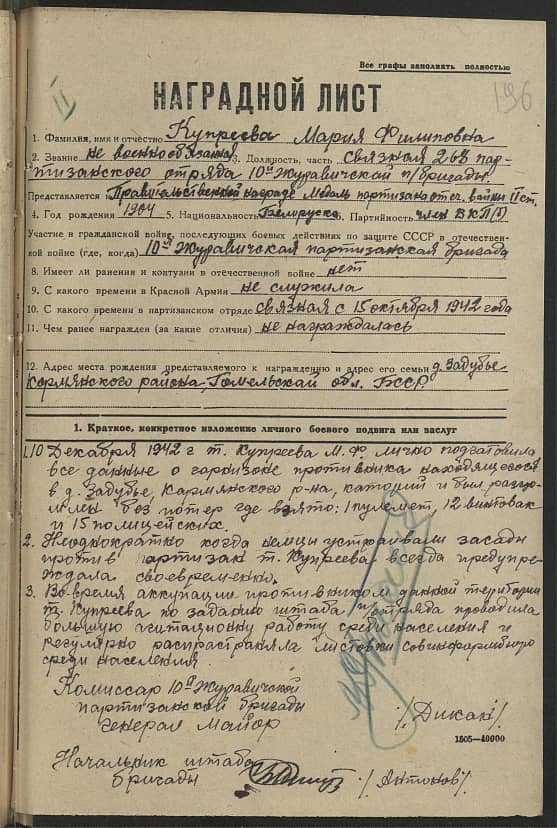 Все графы заполнять полностью
II
196
НАГРАДНОЙ ЛИСТ
1. Фамилия, имя и отчество Купреева Мария Филиповна
2. Звание не военнообязаная 3. Должность, часть связная 268 пар-
тизанского отряда 10й Журавичской п/бригады.
Представляется к Правительственной награде Медаль партизан отеч. войны II ст.
4. Год рождения 1904 5. Национальность Белоруска 6. Партийность член ВКП(б)
Участие в гражданской войне, последующих боевых действиях по защите СССР в отечествен-
ной войне (где, когда) 10я Журавичская партизанская бригада
8. Имеет ли ранения и контузии в отечественной войне нет
9. С какого времени в Красной Армии не служила
10. С какого времени в партизанском отряде связная с 15 октября 1942 года
11. Чем ранее награжден (за какие отличия) не награждалась
12. Адрес места рождения представляемого к награждению и адрес его семьи д. Задубье
Кормянского района, Гомельской обл. БССР.
1. Краткое, конкретное изложение личного боевого подвига или заслуг
1. 10 Декабря 1942 г т. Купреева М. Ф. лично подготовила
все данные о гарнизоне противника находящегося
в д. Задубье, Кармянского р-на, каторий и был разгро-
млен без потер где взято: 1 пулемет, 12 винтовак
и 15 полицейских.
2. Неоднократно когда немцы устраивали засады
против партизан т. Купреева всегда предупре-
ждала своевременно.
3. Во время аккупации противником данной територии
т. Купреева по заданию штаба п/отряда проводила
большую агитационну работу среди населения и
регулярно распрастраняла листовки совинформбюро
среди населения
Комиссар 10й Журавичской
партизанской бригады
генерал майор /Дикан/
1505—40000
Начальник штаба
бригады /Антонов/